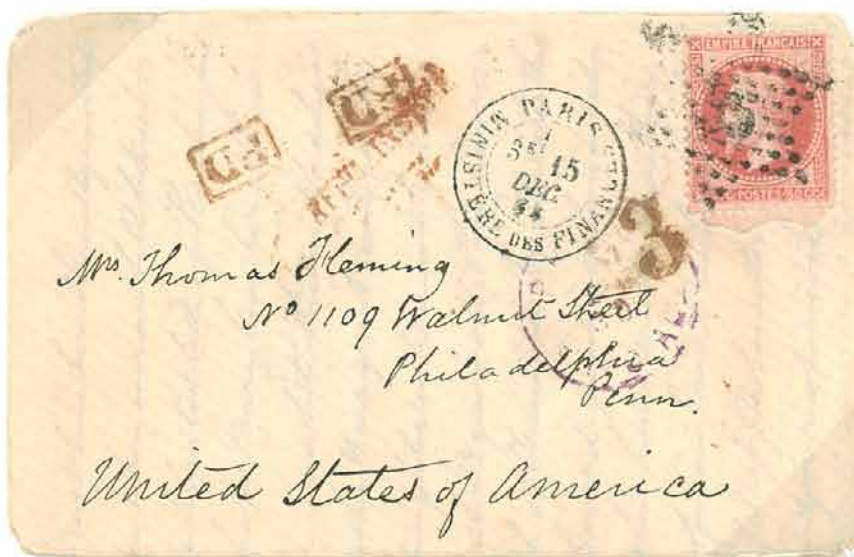 EMPIRE FRANÇAIS
POSTES
PD
PARIS
15
DEC.
MINISTÈRE DES FINANCES
3
Mrs. Thomas Fleming
No 1109 Walnut Street
Philadelphia
Penn.
United States of America